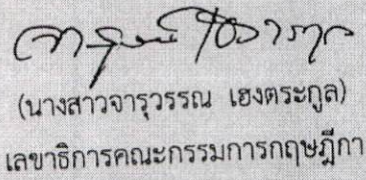 (นางสาวจารุวรรณ เฮงตระกูล)
เลขาธิการคณะกรรมการกฤษฎีกา